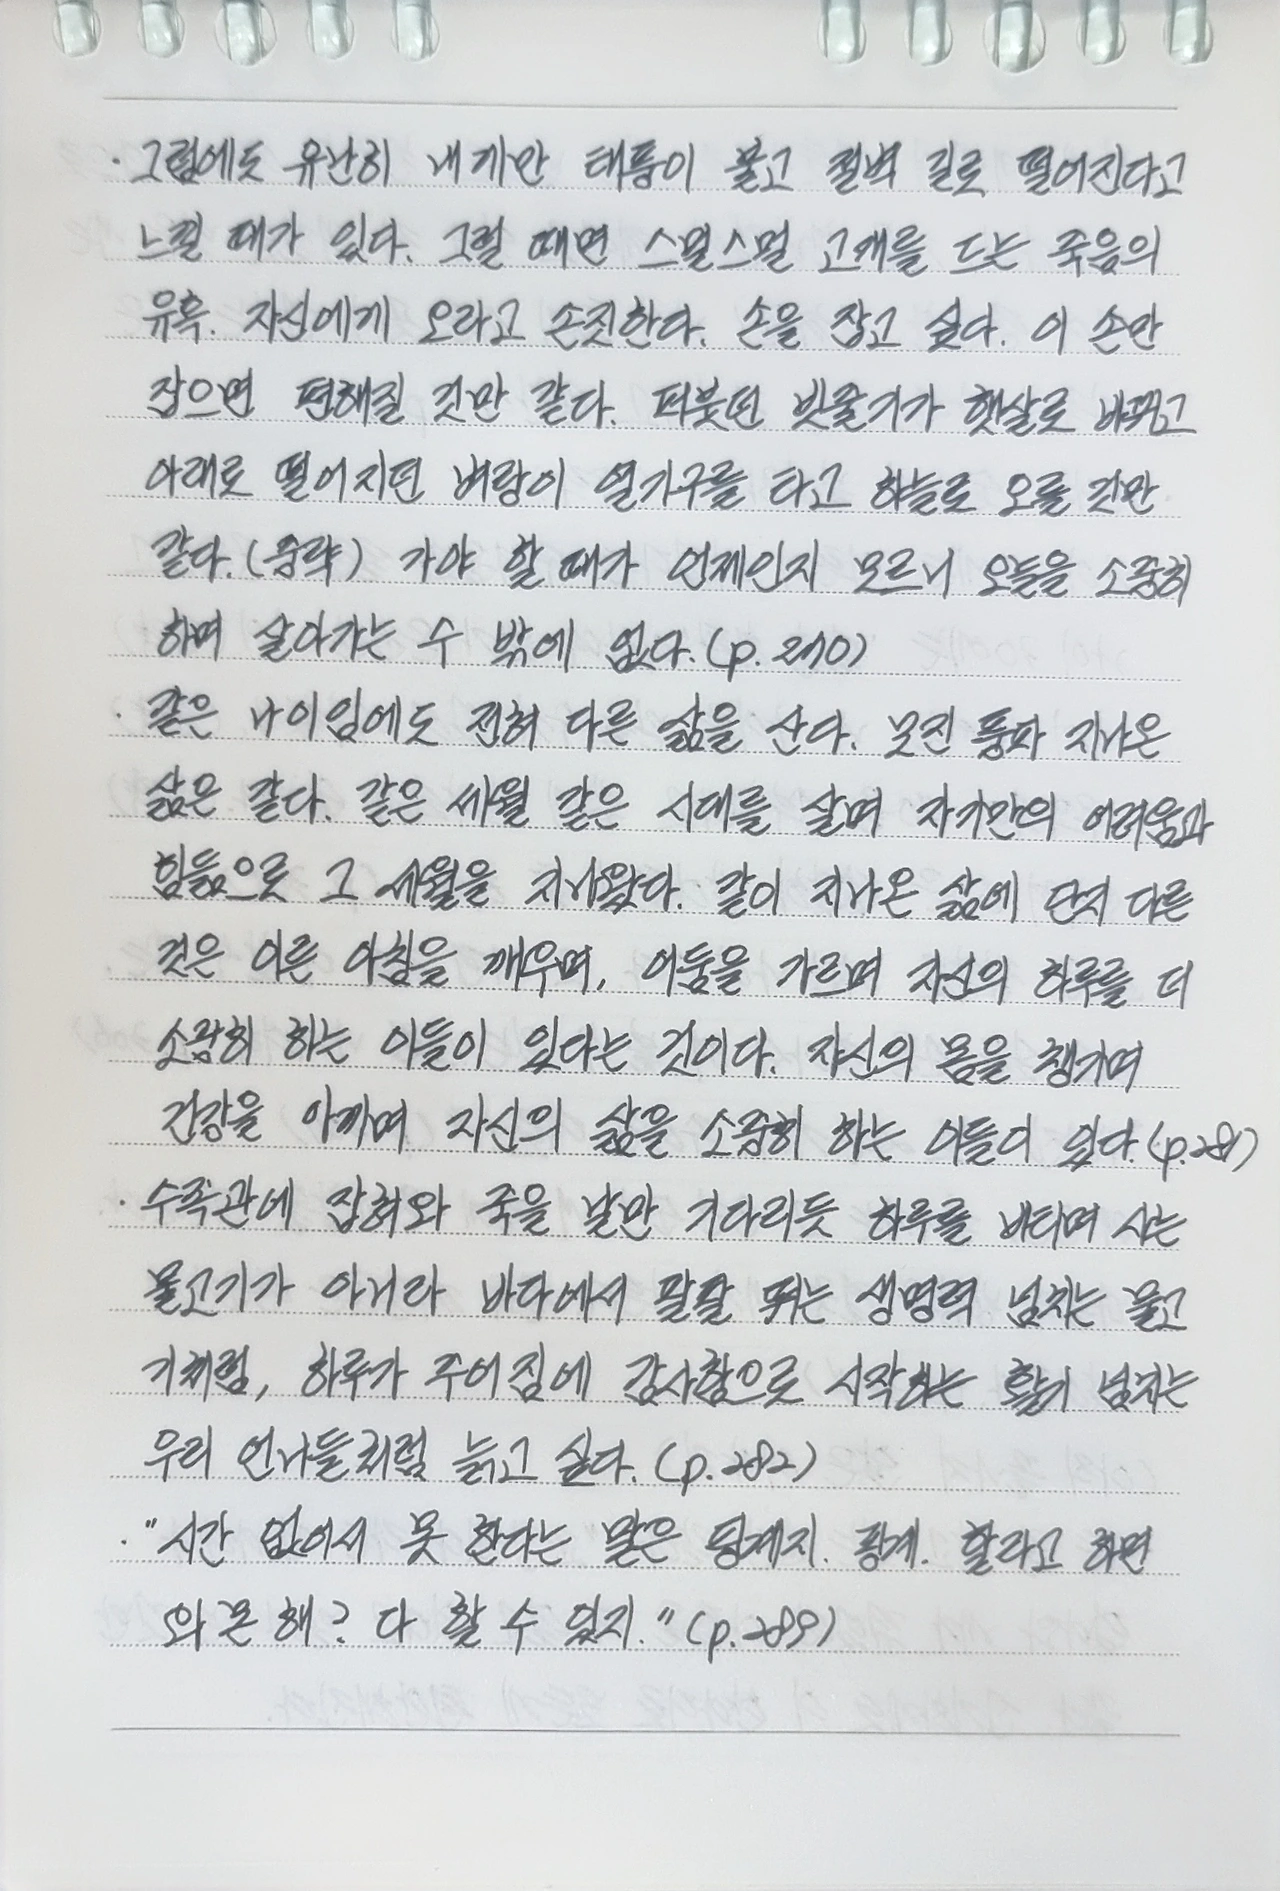 · 그럼에도 유난히 내게만 태풍이 불고 절벽 길로 떨어진다고
느낄 때가 있다. 그럴 때면 스멀스멀 고개를 드는 죽음의
유혹. 자신에게 오라고 손짓한다. 손을 잡고 싶다. 이 손만
잡으면 편해질 것만 같다. 퍼붓던 빗줄기가 햇살로 바뀌고
아래로 떨어지던 벼랑이 열기구를 타고 하늘로 오를 것만
같다. (중략) 가야 할 때가 언제인지 모르니 오늘을 소중히
하며 살아가는 수 밖에 없다. (p. 270)
· 같은 나이임에도 전혀 다른 삶을 산다. 모진 풍파 지나온
삶은 같다. 같은 세월 같은 시대를 살며 자기만의 어려움과
힘듦으로 그 세월을 지나왔다. 같이 지나온 삶에 단지 다른
것은 이른 아침을 깨우며, 어둠을 가르며 자신의 하루를 더
소중히 하는 이들이 있다는 것이다. 자신의 몸을 챙기며
건강을 아끼며 자신의 삶을 소중히 하는 이들이 있다. (p.281)
· 수족관에 잡혀와 죽을 날만 기다리듯 하루를 버티며 사는
물고기가 아니라 바다에서 팔팔 뛰는 생명력 넘치는 물고
기처럼, 하루가 주어짐에 감사함으로 시작하는 활기 넘치는
우리 언니들처럼 늙고 싶다. (p.282)
· "시간 없어서 못 한다는 말은 핑계지. 핑계. 할라고 하면
와 못 해? 다 할 수 있지." (p.289)